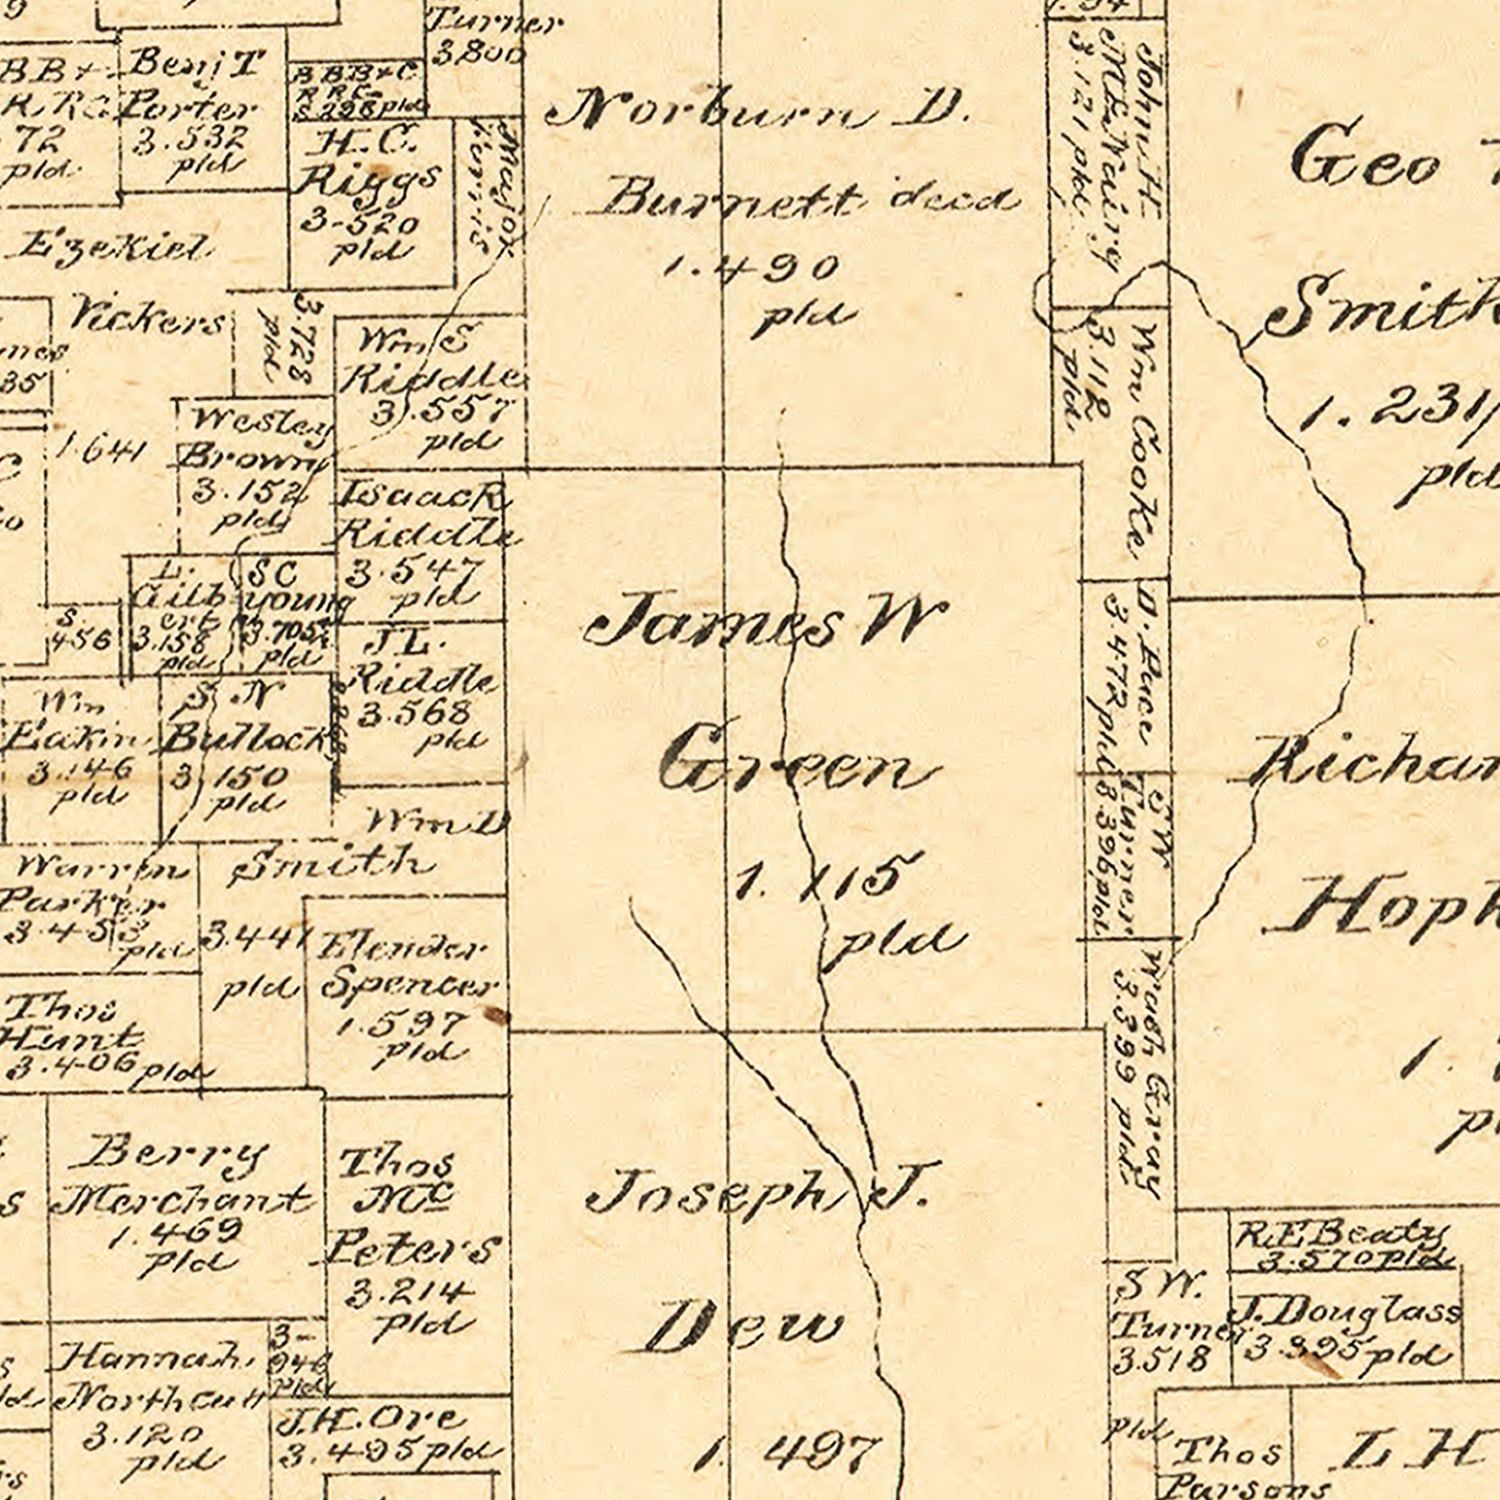 9
BB+
R RC
72
pld.
Benj T
Porter
3.532
pld
Turner
3.800
BBB+C
R RC
S 296 pld
H. C.
Riggs
3-520
pld
Major
Ferris
Norburn D.
Burnett decd
1.490
pld
John H
McNairy
3.121 pld.
Geo
Smith
1.231
pld
Ezekiel
Vickers
1.641
3.728
pld
35
Wm S
Riddle
3.557
pld
Wesley
Brown
3.152
pld
Wm Cooke
3.112
pld
Isaack
Riddle
3.547
pld
L.
Gilb
ert
3.158
pld
SC
Young
3.705
pld
S
456
J L.
Riddle
3.568
pld
James W
Green
1.115
pld
D. Pace
3.472 pld
S W
Turner
3.396 pld
Richar
Hopk
1.
Wm
Eakin
3.146
pld
S. N
Bullock
3.150
pld
Wm D
Smith
3.441
pld
Warren
Parker
3.453
pld
Elender
Spencer
1.597
pld
Thos
Hunt
3.406 pld
Wash Gray
3.399 pld.
Berry
Merchant
1.469
Pld
Thos
Mc
Peters
3.214
pld
Joseph J.
Dew
1.497
R.E Beaty
3.570 pld
S W.
Turner
3.518
pld
J. Douglass
3.395 pld
Hannah
Northcutt
3.120
pld
3-
946
pld
J.H. Ore
3.495 pld
Thos
Parsons
L H